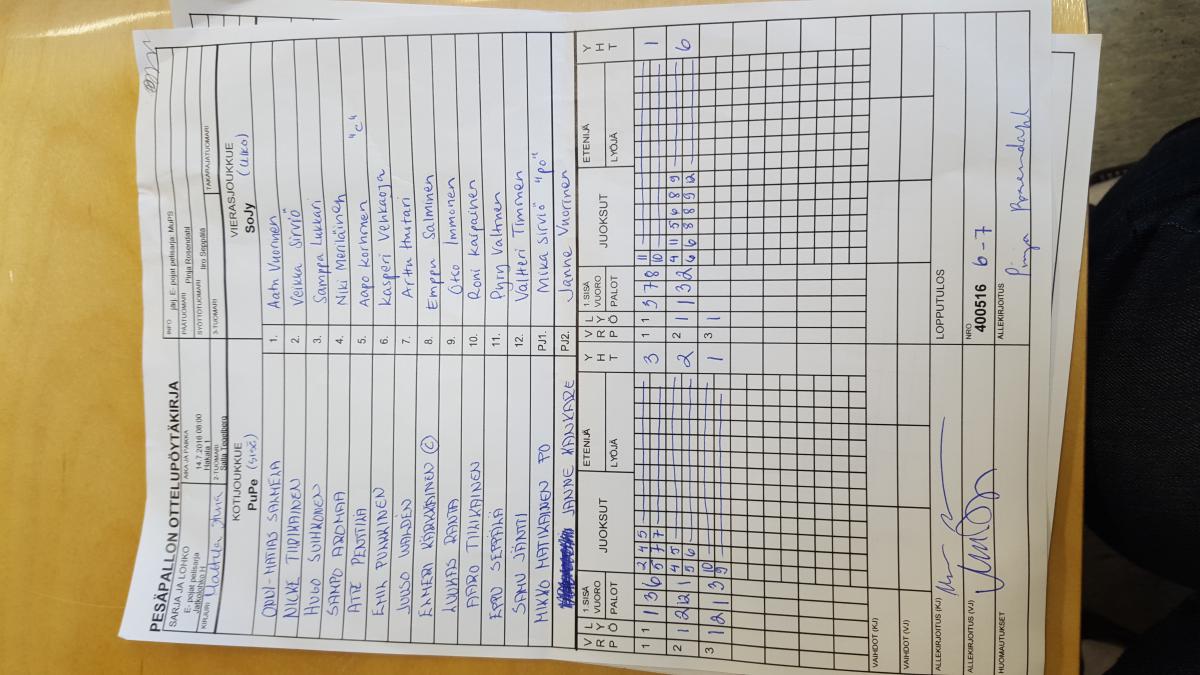 PESÄPALLON OTTELUPÖYTÄKIRJA
SARJA JA LOHKO
E- pojat pelisarja
Jatkolohko H
AIKA JA PAIKKA
14.7.2016 08:00
Hakala 1
INFO järj. E- pojat pelisarja MuPS
PÄÄTUOMARI Pinja Rosendahl
SYÖTTÖTUOMARI Iiro Seppälä
KIRJURI
2-TUOMARI
3-TUOMARI
TAKARAJATUOMARI
KOTIJOUKKUE
PuPe (SISÄ)
VIERASJOUKKUE
SoJy (ULKO)
ONNI-MATIAS SALMELA 1. Aatu Vuorinen
NICKE TIIRIKAINEN 2. Veikka Sirviö
HUGO SUIHKONEN 3. Samppa Lukkari
SAMPO AROMAA 4. Niki Meriläinen
ATTE PENTTILÄ 5. Aapo Korhonen "C"
EMIL PIRKKINEN 6. Kasperi Vehkaoja
JUUSO WADEN 7. Arttu Huttari
EEMERI KÄRKKÄINEN (C) 8. Emppu Salminen
LUUKAS RANTA 9. Otso Immonen
AARO TIILIKAINEN 10. Roni Karpainen
EPPU SEPPÄLÄ 11. Pyry Valtonen
SAMU JÄNTTI 12. Valtteri Timonen
MIKKO MATIKAINEN PO PJ1. Mika Sirviö "po"
JANNE KANKARE PJ2. Janne Vuorinen
V R P L Y Ö 1.SISÄ VUORO PALOT JUOKSUT ETENIJÄ LYÖJÄ Y H T
V R P L Y Ö 1.SISÄ VUORO PALOT JUOKSUT ETENIJÄ LYÖJÄ Y H T
1 1 3 6 2 4 5 3
5 7 7
1 1 3 7 8 11 1
10
2 1 2 12 1 4 5 2
5 6
2 1 1 3 2 4 11 5 6 8 9 6
6 8 8 9 12
3 1 2 1 3 10 1
9
3 1
VAIHDOT (KJ)
VAIHDOT (VJ)
ALLEKIRJOITUS (KJ)
LOPPUTULOS
ALLEKIRJOITUS (VJ)
NRO
400516 6-7
HUOMAUTUKSET
ALLEKIRJOITUS
Pinja Rosendahl